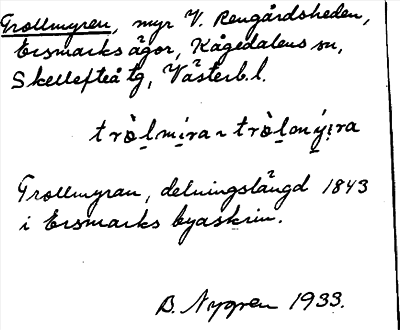 Trollmyren, myr V. Rengårdsheden,
Ersmarks ägor, Kågedalens sn,
Skellefteå tg, Västerb. l.
tròl̥mi̥ra ~ tròl̥omý̥i̥ra
Trollmyran, delningslängd 1843
i Ersmarks byaskrin.
B. Nygren 1933.